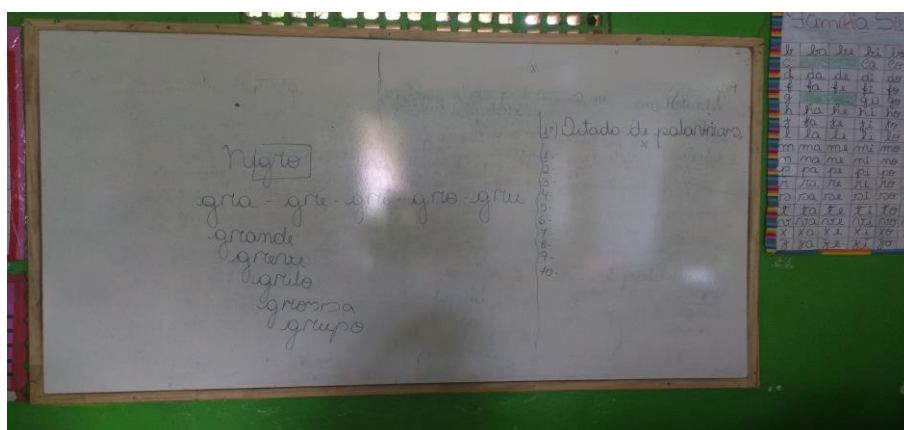 negro
gra - gre - gri - gro - gru
grande
greve
grilo
grossa
grupo
2º) Ditado de palavras
1-
2-
3-
4-
5-
6-
7-
8-
9-
10-
Família
b ba be bi bo
c ca co
d da de di do
f fa fe fi fo
g go
h ha he hi ho
j ja je ji jo
l la le li lo
m ma me mi mo
n na ne ni no
p pa pe pi po
r ra re ri ro
s sa se si so
t ta te ti to
v va ve vi vo
x xa xe xi xo
z za ze zi zo